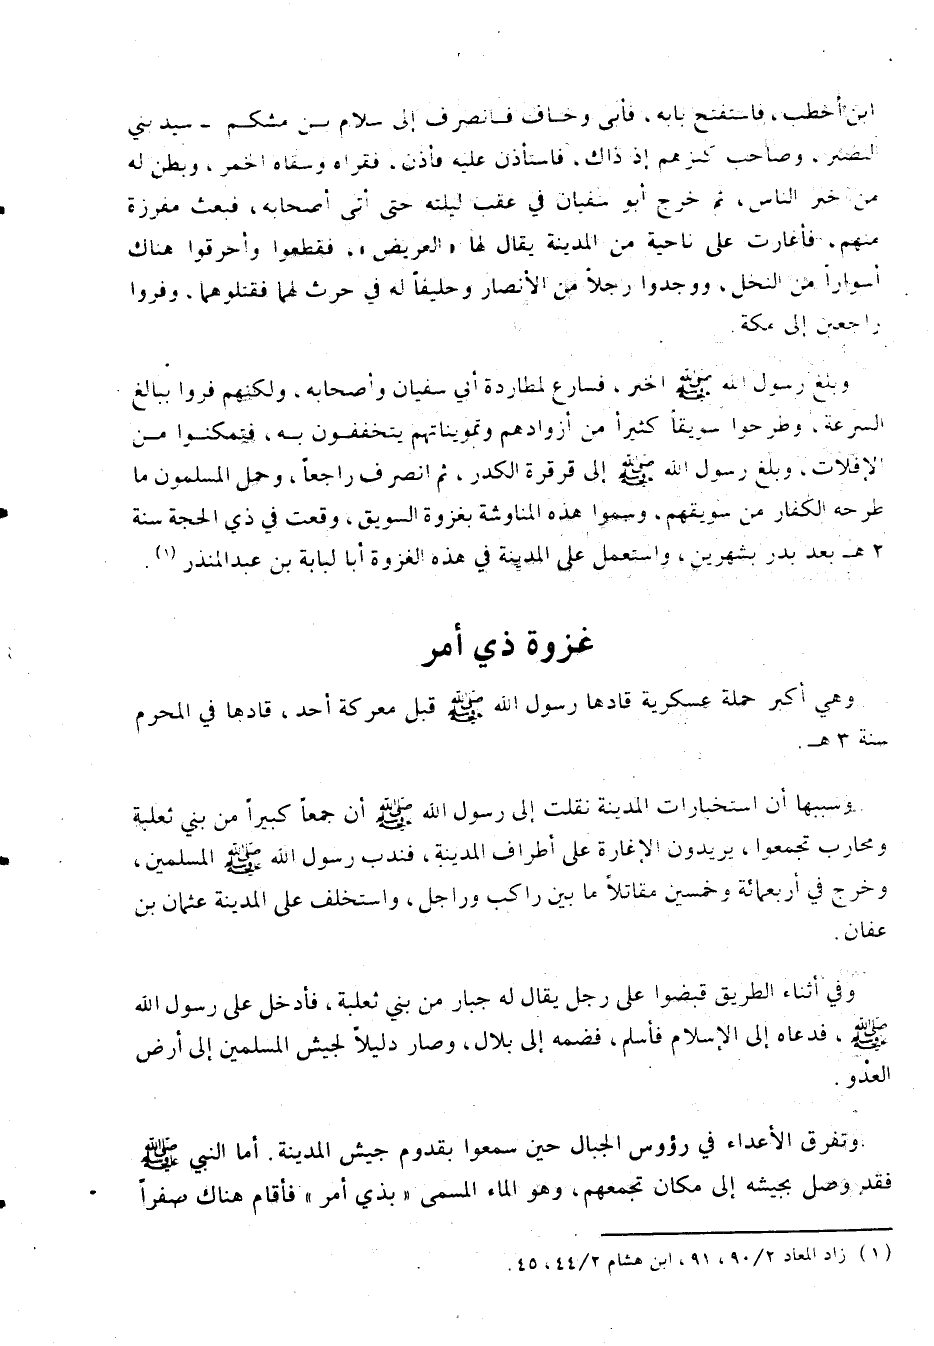 ابن أخطب، فاستفتح بابه، فأبى وخاف فانصرف إلى سلام بن مشكم - سيد بني
النضير، وصاحب كنزهم إذ ذاك، فاستأذن عليه فأذن، فقراه وسقاه الخمر، وبطن له
من خبر الناس، ثم خرج أبو سفيان في عقب ليلته حتى أتى أصحابه، فبعث مفرزة
منهم، فأغارت على ناحية من المدينة يقال لها «العريض»، فقطعوا وأحرقوا هناك
أسواراً من النخل، ووجدوا رجلاً من الأنصار وحليفاً له في حرث لهما فقتلوهما، وفروا
راجعين إلى مكة.
وبلغ رسول الله ﷺ الخبر، فسارع لمطاردة أبي سفيان وأصحابه، ولكنهم فروا ببالغ
السرعة، وطرحوا سويقاً كثيراً من أزوادهم وتمويناتهم يتخففون به، فتمكنوا من
الإفلات، وبلغ رسول الله ﷺ إلى قرقرة الكدر، ثم انصرف راجعاً، وحمل المسلمون ما
طرحه الكفار من سويقهم، وسموا هذه المناوشة بغزوة السويق، وقعت في ذي الحجة سنة
٢ هـ بعد بدر بشهرين، واستعمل على المدينة في هذه الغزوة أبا لبابة بن عبدالمنذر (١).
غزوة ذي أمر
وهي أكبر حملة عسكرية قادها رسول الله ﷺ قبل معركة أحد، قادها في المحرم
سنة ٣ هـ.
وسببها أن استخبارات المدينة نقلت إلى رسول الله ﷺ أن جمعاً كبيراً من بني ثعلبة
ومحارب تجمعوا، يريدون الإغارة على أطراف المدينة، فندب رسول الله ﷺ المسلمين،
وخرج في أربعمائة وخمسين مقاتلاً ما بين راكب وراجل، واستخلف على المدينة عثمان بن
عفان.
وفي أثناء الطريق قبضوا على رجل يقال له جبار من بني ثعلبة، فأدخل على رسول الله
ﷺ، فدعاه إلى الإسلام فأسلم، فضمه إلى بلال، وصار دليلاً لجيش المسلمين إلى أرض
العدو.
وتفرق الأعداء في رؤوس الجبال حين سمعوا بقدوم جيش المدينة. أما النبي ﷺ
فقد وصل بجيشه إلى مكان تجمعهم، وهو الماء المسمى «بذي أمر» فأقام هناك صفراً
(١) زاد المعاد ٢/٩٠، ٩١، ابن هشام ٢/٤٤، ٤٥.